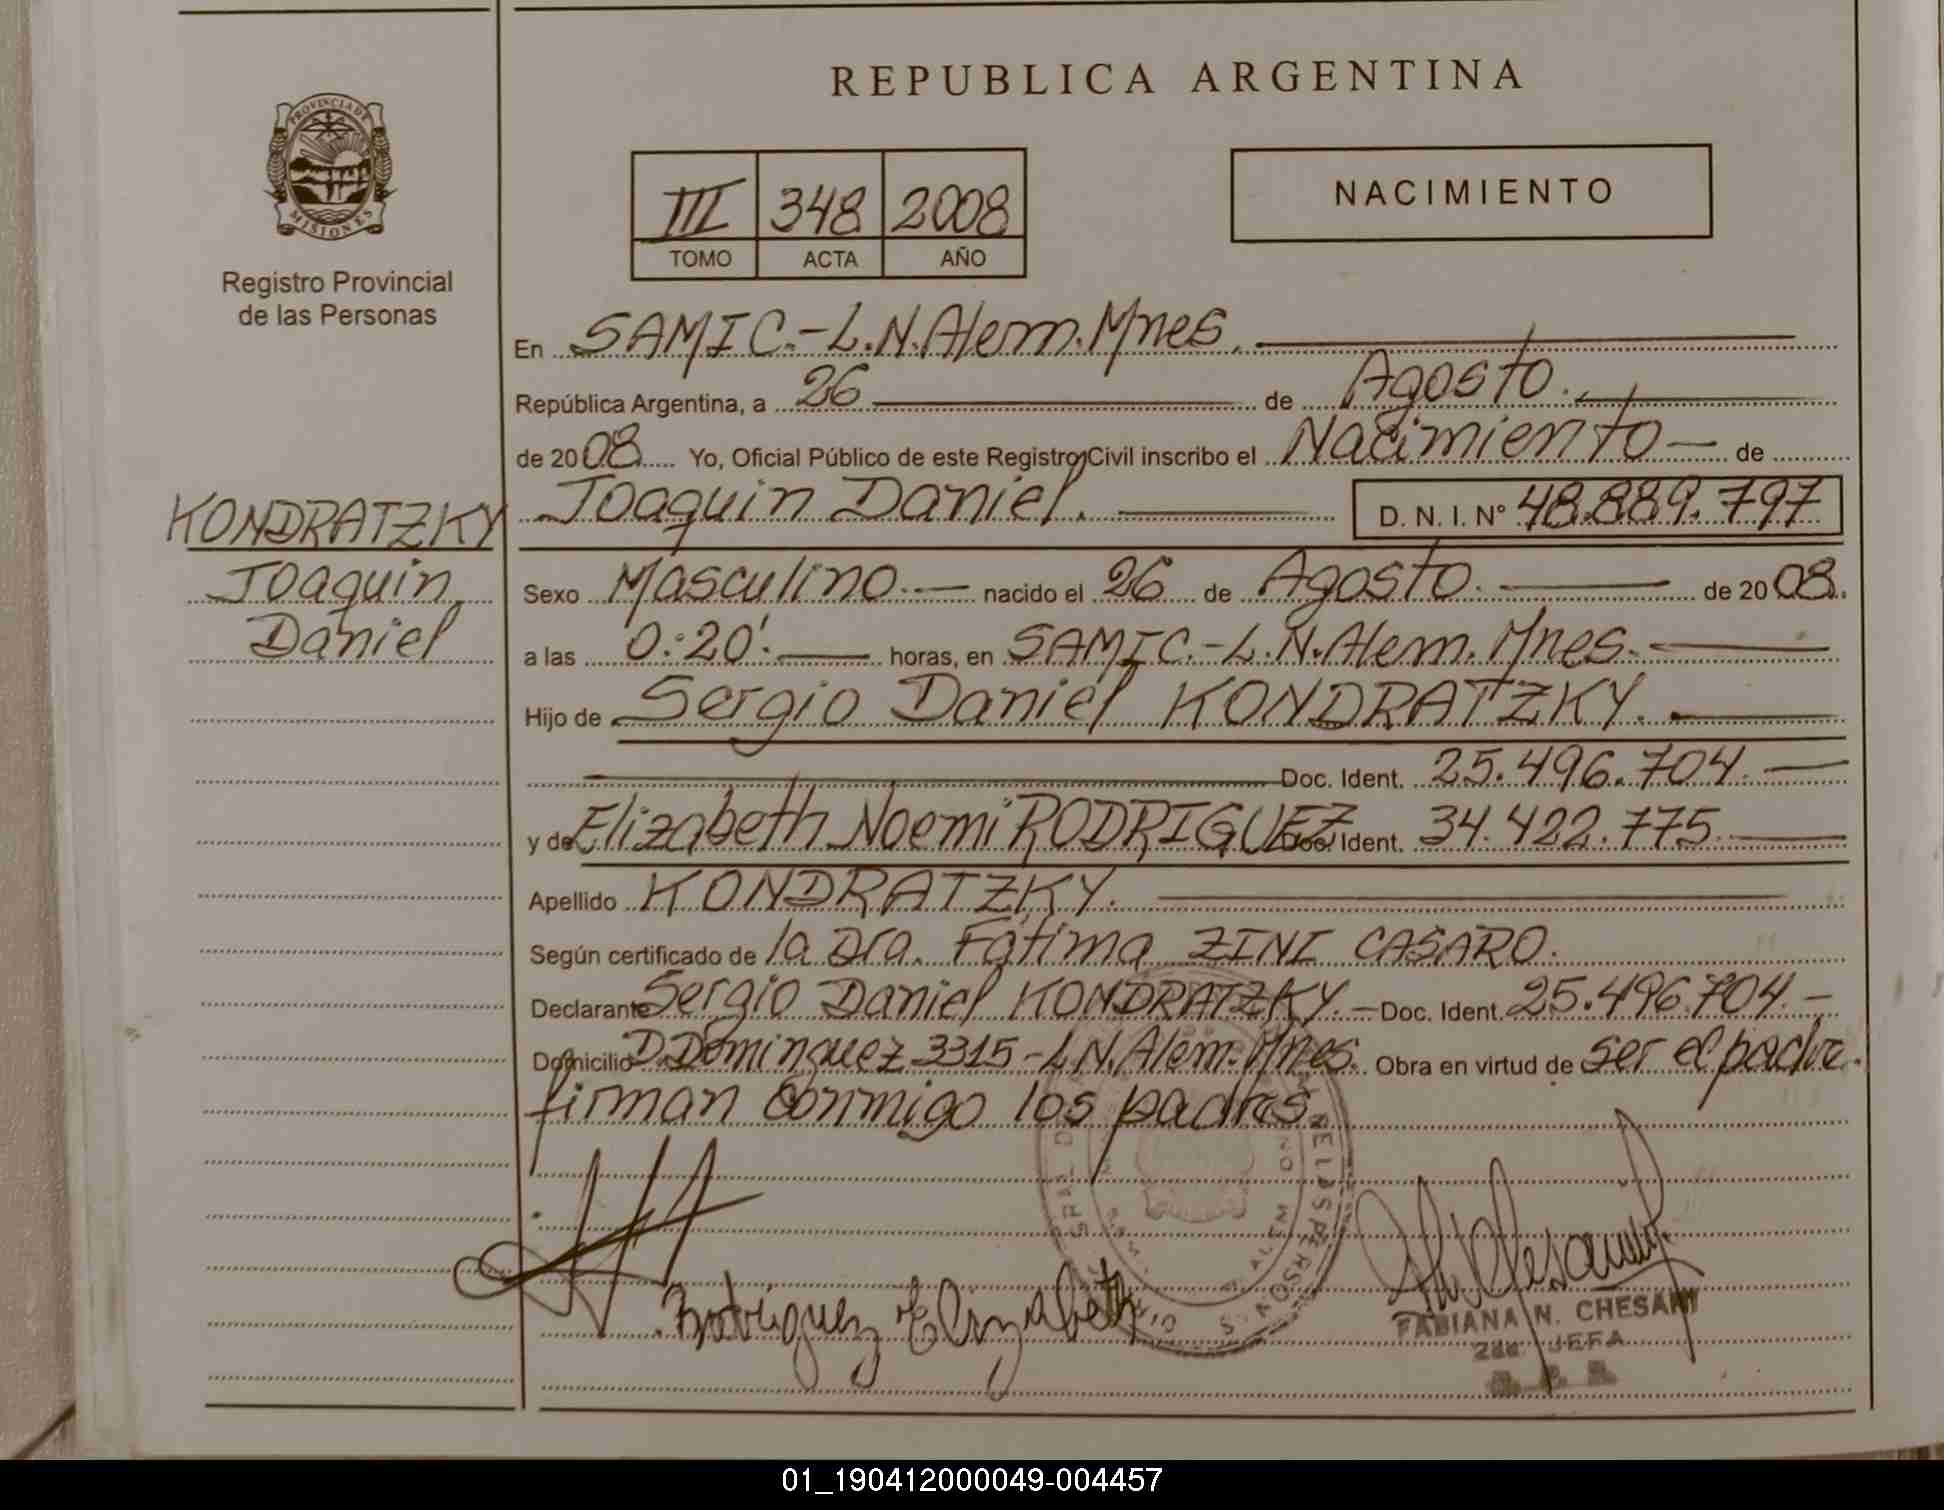 REPUBLICA ARGENTINA
PROVINCIA DE MISIONES
Registro Provincial
de las Personas
III 348 2008
TOMO ACTA AÑO
NACIMIENTO
En SAMIC.-L.N.Alem.Mnes.
República Argentina, a 26 de Agosto.
de 2008 Yo, Oficial Público de este Registro Civil inscribo el Nacimiento de
KONDRATZKY
Joaquin
Daniel
Joaquin Daniel. D. N. I. N° 48.889.797
Sexo Masculino.- nacido el 26 de Agosto. de 2008.
a las 0:20'. horas, en SAMIC.-L.N.Alem.Mnes.
Hijo de Sergio Daniel KONDRATZKY.
Doc. Ident. 25.496.704.
y de Elizabeth Noemi RODRIGUEZ Doc. Ident. 34.422.775.
Apellido KONDRATZKY.
Según certificado de la Dra. Fátima ZINI CASARO.
Declarante Sergio Daniel KONDRATZKY.- Doc. Ident. 25.496.704.-
Domicilio D.Dominguez 3315-L.N.Alem.Mnes. Obra en virtud de ser el padre.
firman conmigo los padres
Rodriguez Elizabeth
FABIANA N. CHESANI
2da JEFA
01_190412000049-004457